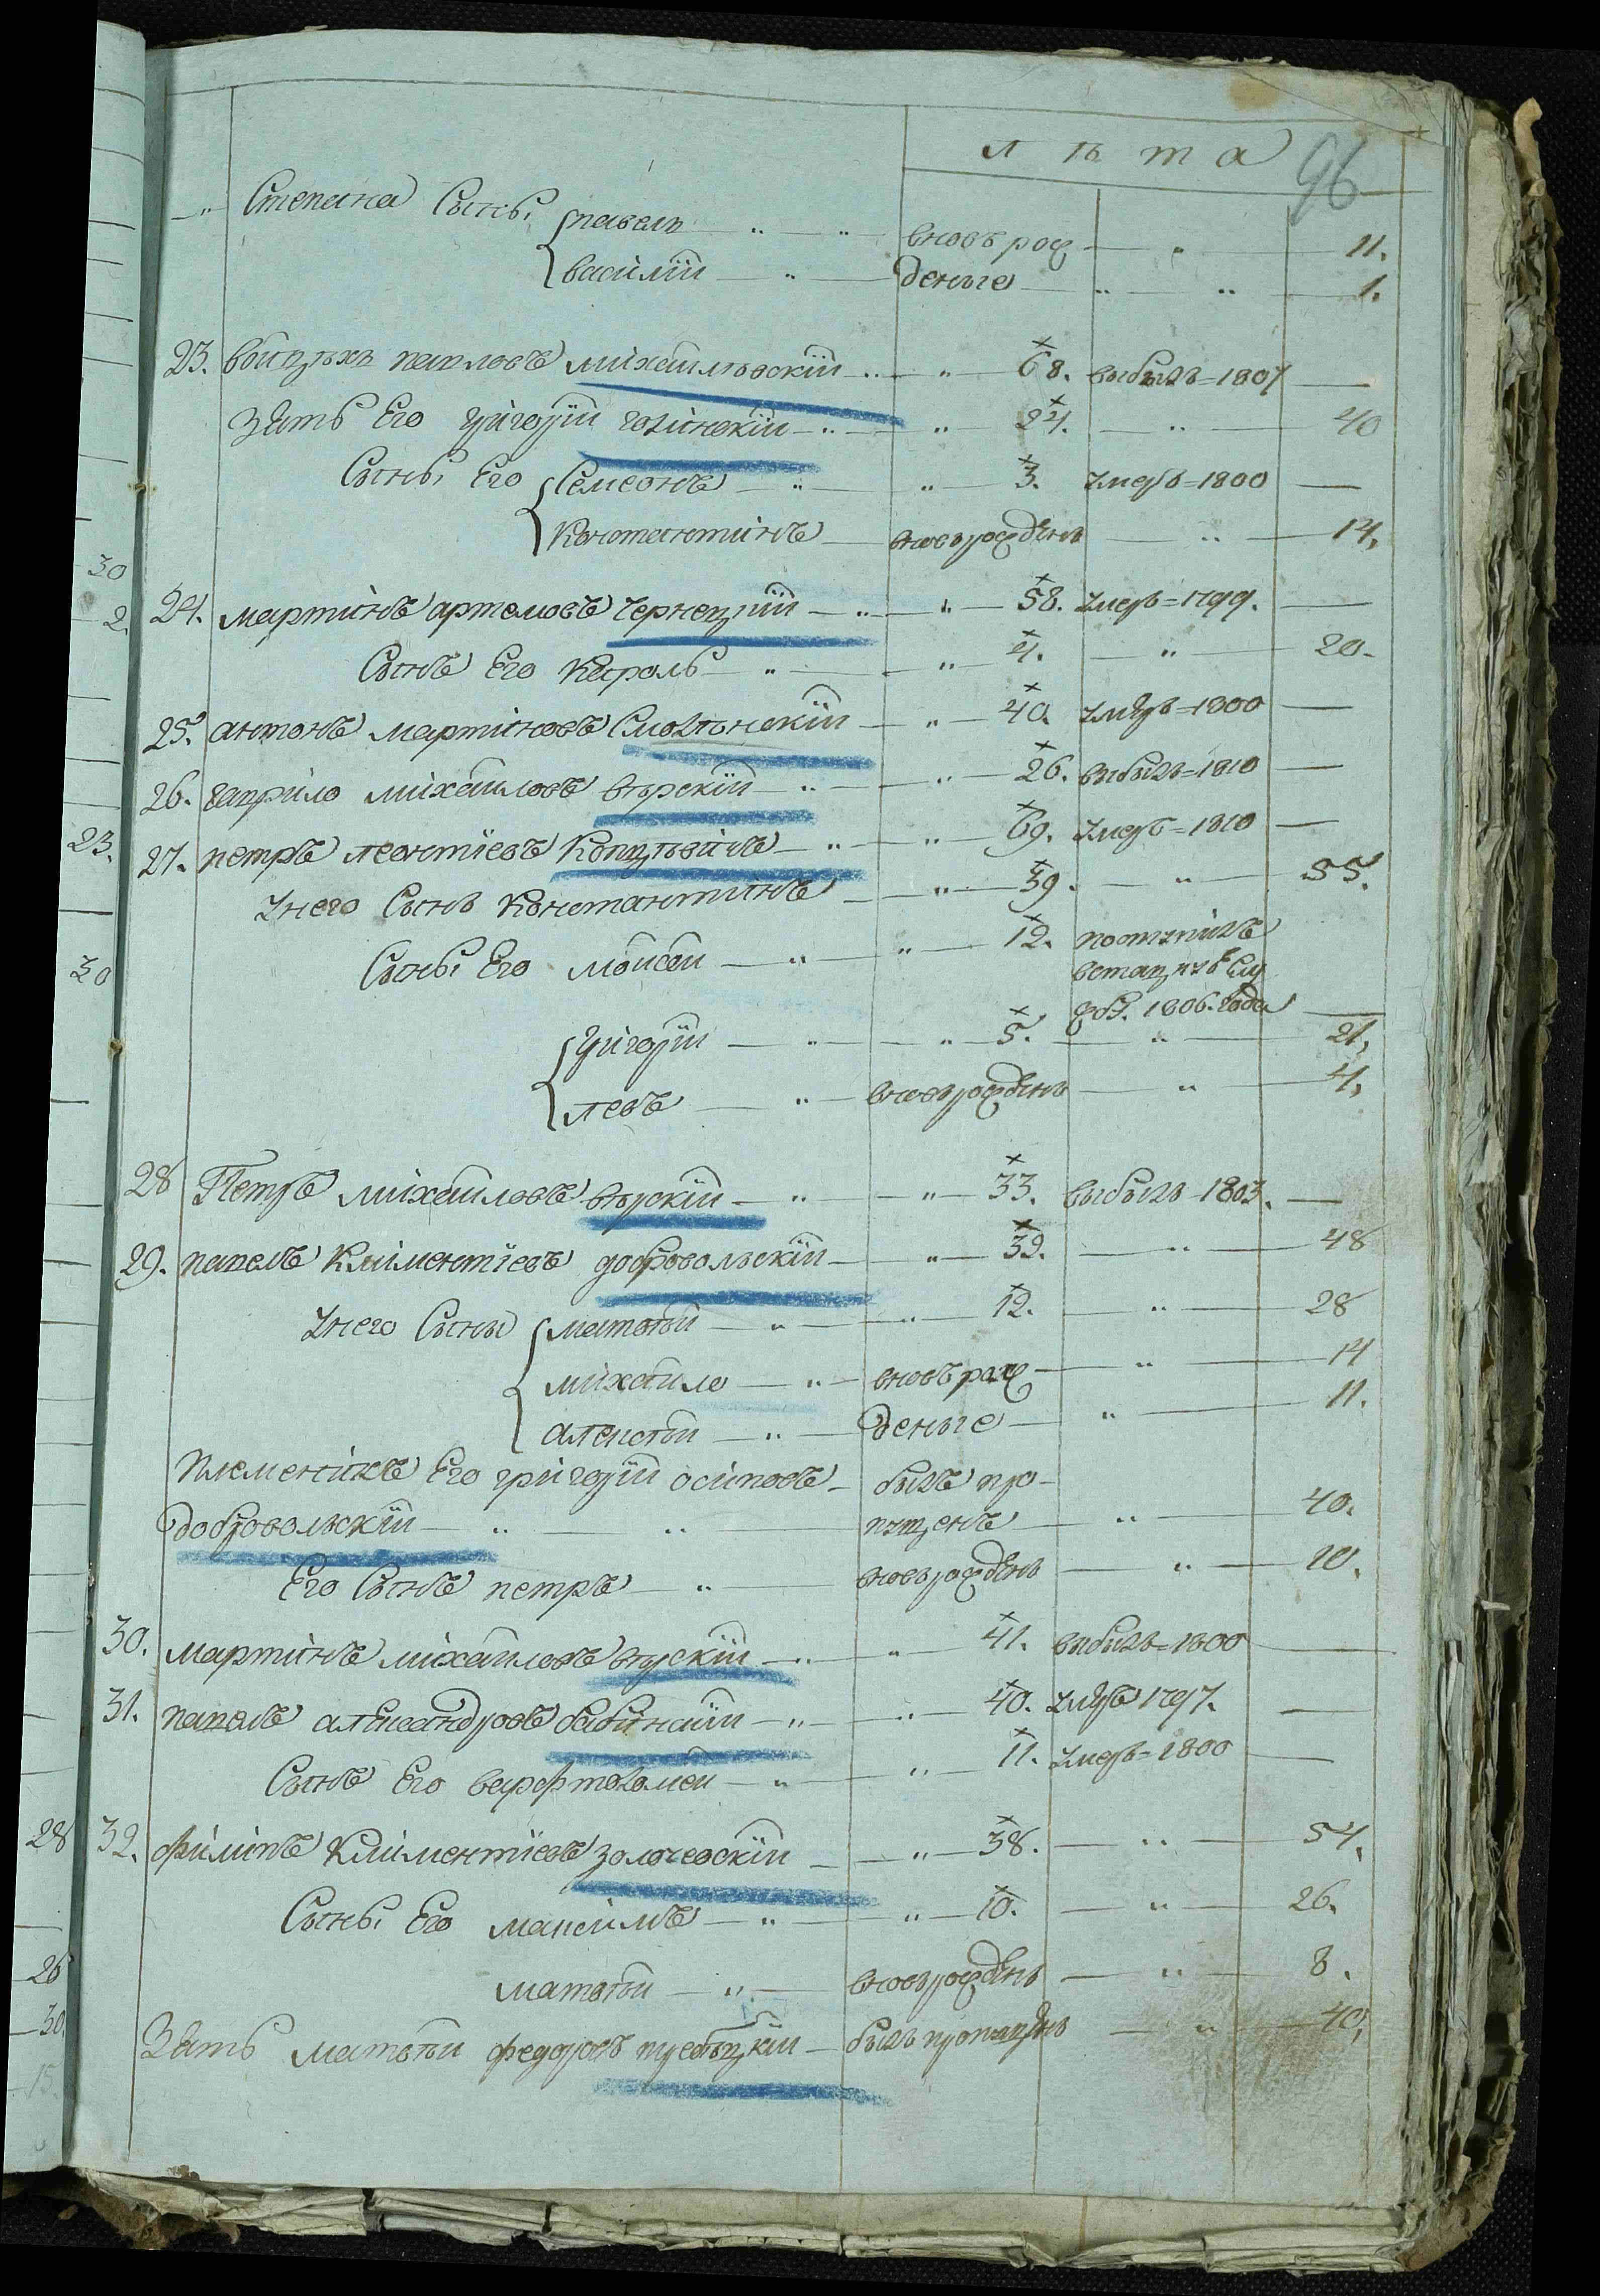 лѣта 96
Степана Сыны павелъ вновь рож 11.
василій денные 1.
23. Павловъ михаильовскій 68. выбылъ=1807
Зять Его григорій 24. 40
Сыны Его Семеонъ 3. умеръ=1800
Константинъ вновьрожденъ 14,
24. мартинъ артемовъ чернецкій 58. умеръ=1799.
Сынъ Его Кароль 4. 20.
25. антонъ мартиновъ Смолѣнскій 40. умеръ=1800
26. гаврило михайловъ вѣрскій 26. выбылъ=1810
27. петръ леонтіевъ 69. умеръ=1810
унего Сынъ Константинъ 39. 55.
Сыны Его мойсей 12. поступилъ
1806. года
григорій 5. 21,
левъ вновьрожденъ 4,
28 Петръ михайловъ вѣрскій 33. выбылъ 1803.
29. павелъ Климентіевъ добровольскій 32. 48
унего Сыны матвѣй 12. 28
михайло вновь рож 14
алексѣй денные 11.
племенникъ Его григорій осиповъ былъ про-
добровольскій пущенъ 40.
Его Сынъ петръ вновьрожденъ 10.
30. мартинъ михайловъ вѣрскій 41. выбылъ=1800
31. павелъ александровъ бабинскій 40. умеръ 1797.
Сынъ Его варфтоломей 11. умеръ=1800
32. филипъ Климентіевъ золочевскій 38. 54.
Сыны Его максимъ 10. 26.
матвѣй вновьрожденъ 8.
Зять матвѣй федоровъ былъ пропущенъ 40,
30
2.
23.
30
28
26
30.
15.